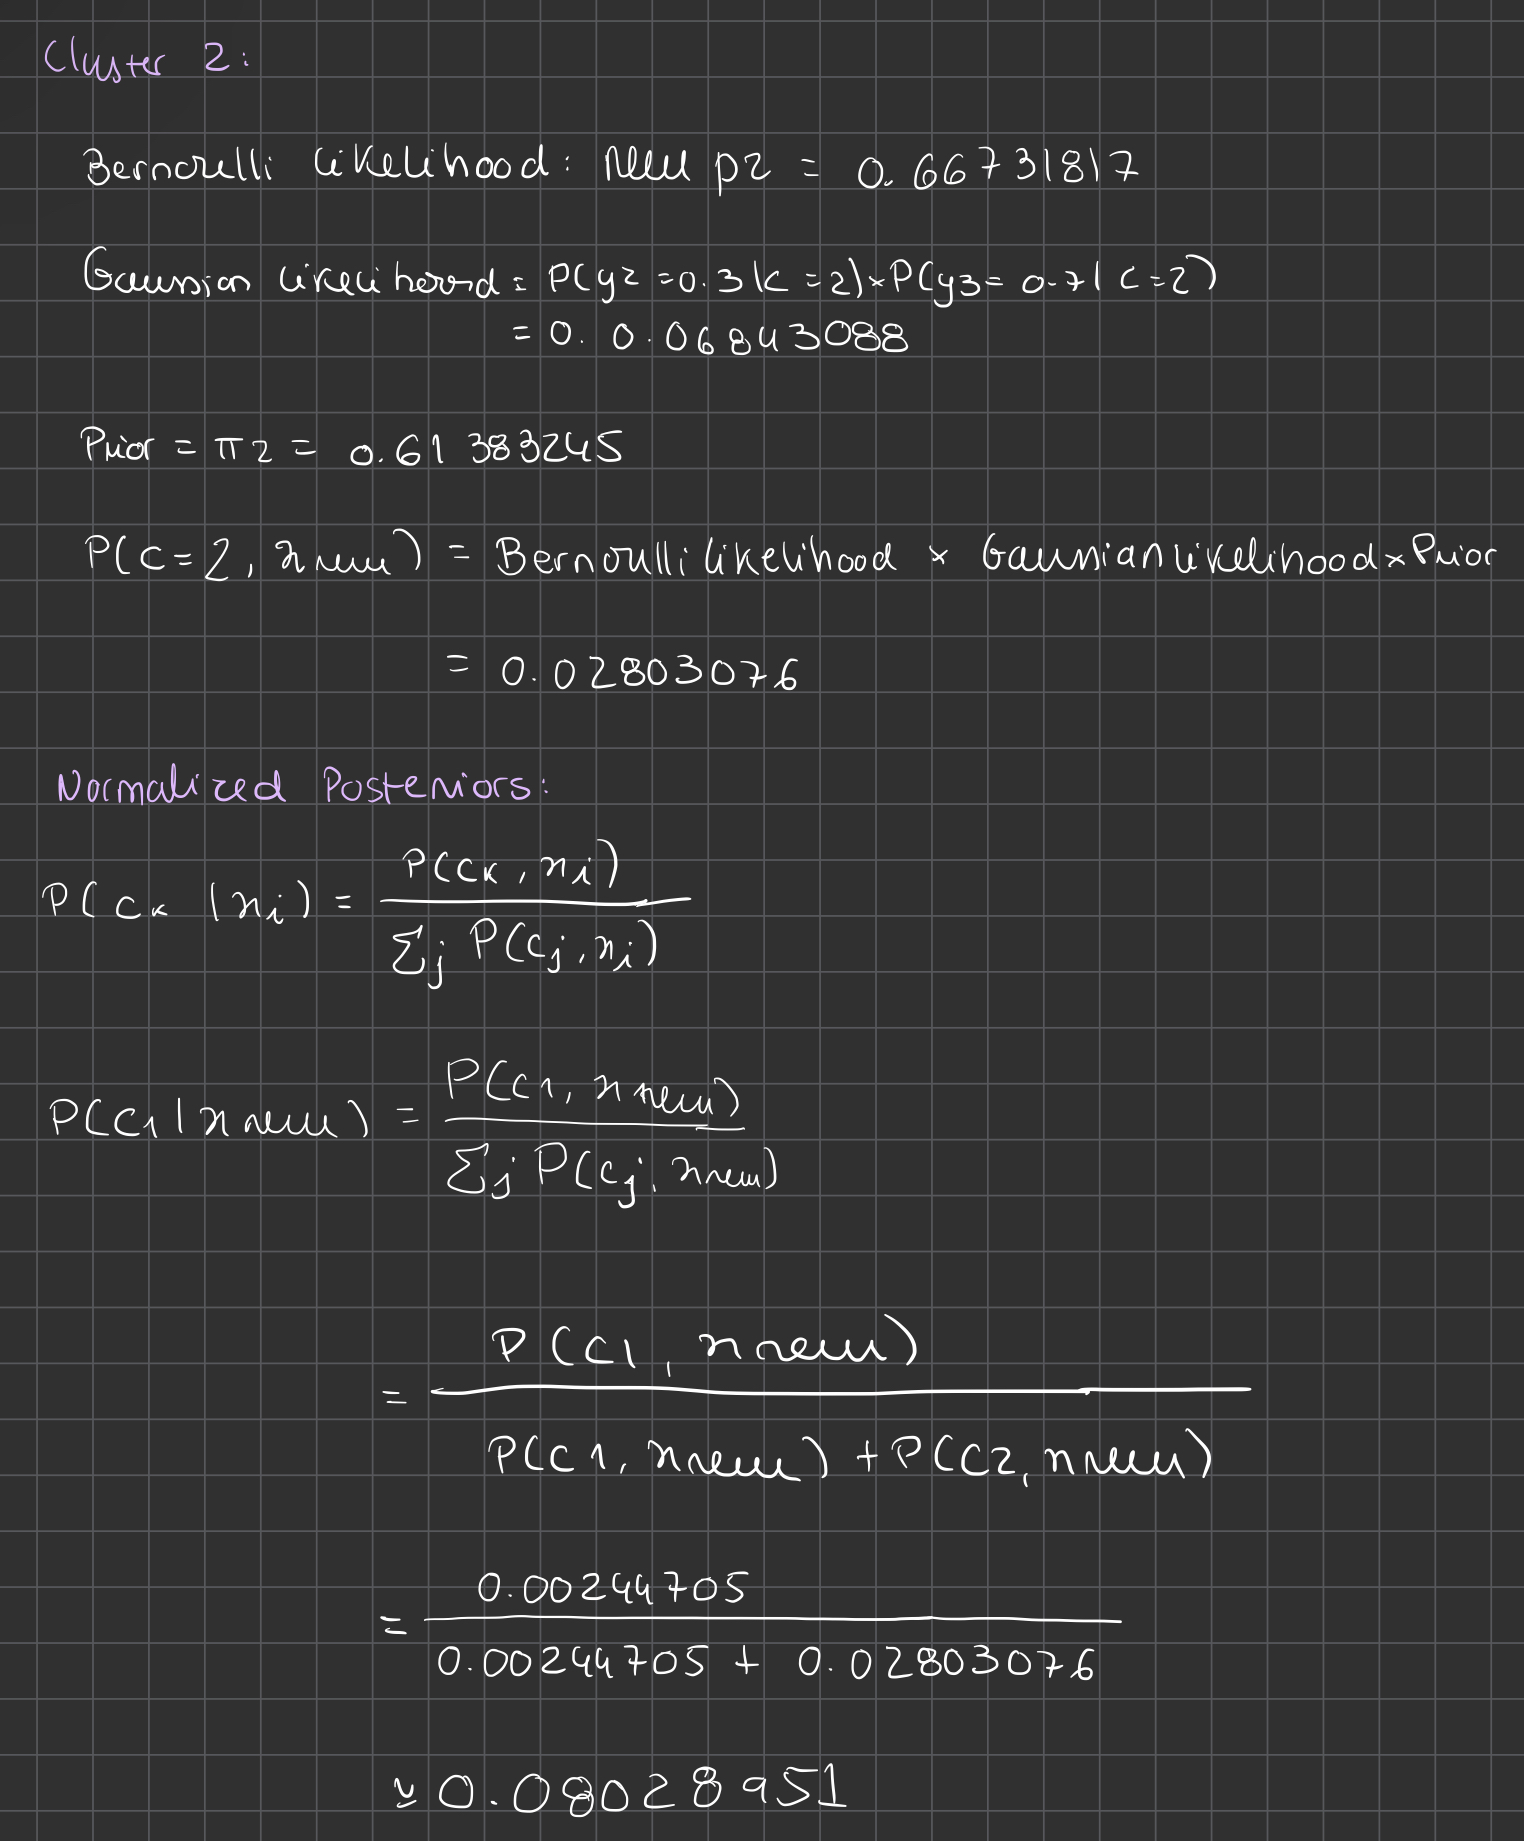 Cluster 2:
Bernorelli likelihood: new p2 = 0.66731817
Gaussian likelihood = P(y2 = 0.3 | c = 2) × P(y3 = 0.7 | c = 2)
= 0. 0.06843088
Prior = π2 = 0.61383245
P(c = 2, xnew) = Bernoulli likelihood × Gaussian likelihood × Prior
= 0.02803076
Normalized Posteriors:
P(ck | xi) = P(ck, xi) / Σj P(cj, xi)
P(c1 | xnew) = P(c1, xnew) / Σj P(cj, xnew)
= P(c1, xnew) / P(c1, xnew) + P(c2, xnew)
= 0.00244705 / 0.00244705 + 0.02803076
≃ 0.08028951